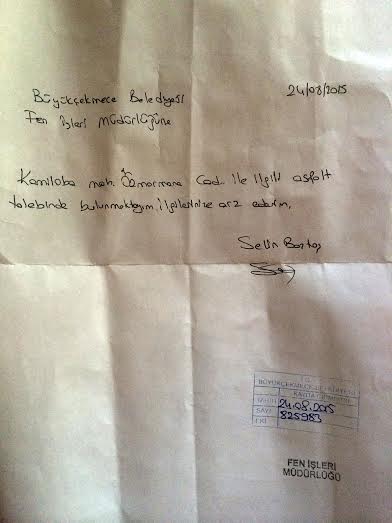 24/08/2015
Büyükçekmece Belediyesi
Fen işleri Müdürlüğüne
Kamiloba mah. Özmarmara Cad. ile ilgili asfalt
talebinde bulunmaktayım. ilgilerinize arz ederim.
Selin Bartaş
T.C.
BÜYÜKÇEKMECE BELEDİYESİ
TARİH 24.08.2015
SAYI 825983
EKİ
FEN İŞLERİ
MÜDÜRLÜĞÜ